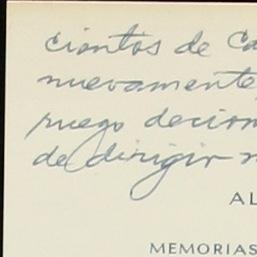 cientos de Ca
nuevamente
ruego decirm
de dirigir m
AL
MEMORIAS